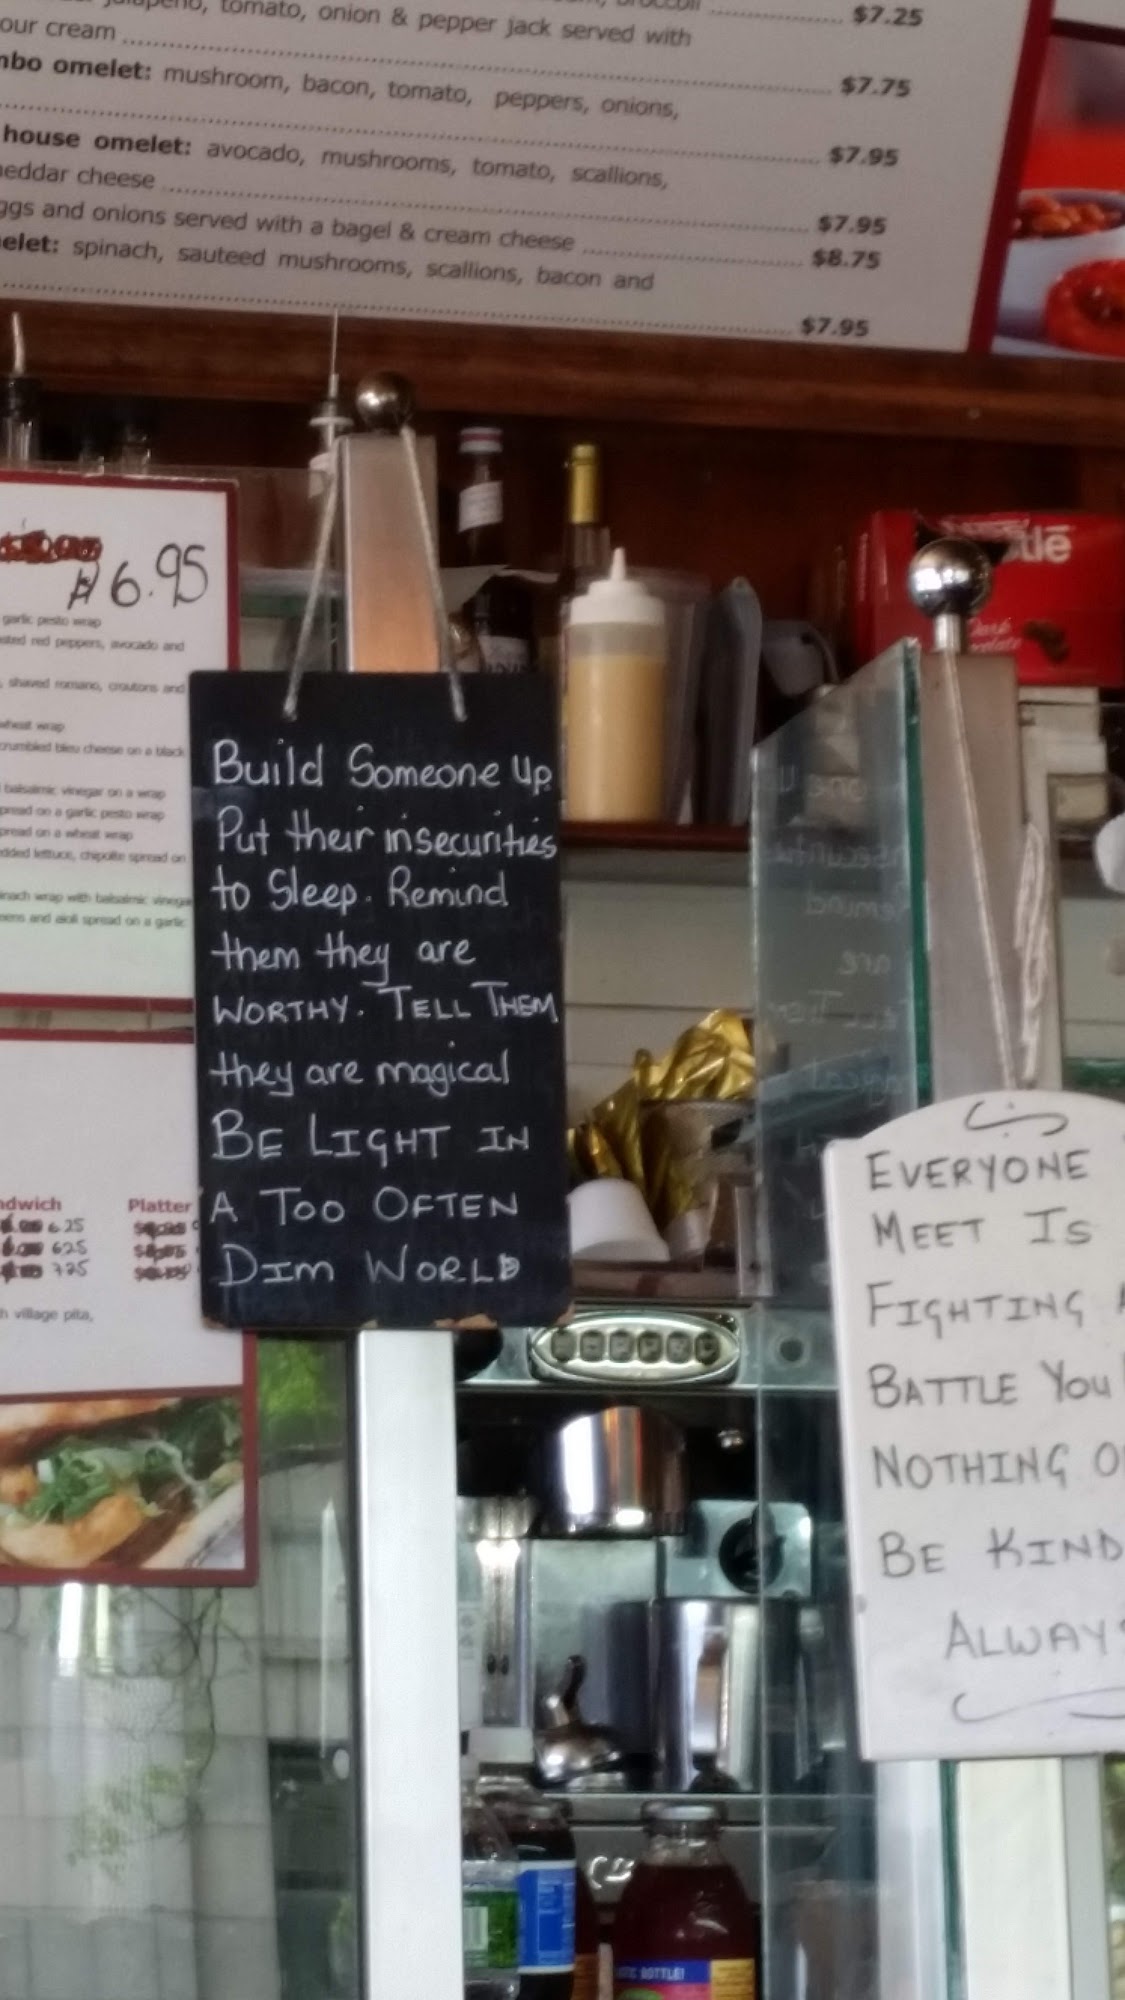 tomato, onion & pepper jack served with
$7.25
our cream
$7.75
omelet: mushroom, bacon, tomato, peppers, onions,
$7.95
house omelet: avocado, mushrooms, tomato, scallions,
cheese
$7.95
and onions served with a bagel & cream cheese
$8.75
spinach, sauteed mushrooms, scallions, bacon and
$7.95
$6.95
garlic pesto wrap
red peppers, avocado and
shaved romano, croutons and
wheat wrap
crumbled bleu cheese on a black
balsalmic vinegar on a wrap
spread on a garlic pesto wrap
spread on a wheat wrap
lettuce, chipolte spread on
wrap with balsalmic
and aioli spread on a garlic
Platter
6.25
625
725
village pita,
Build Someone Up.
Put their insecurities
to Sleep. Remind
them they are
WORTHY. TELL THEM
they are magical
BE LIGHT IN
A Too OFTEN
DIM WORLD
Dark
EVERYONE
MEET IS
FIGHTING A
BATTLE You
NOTHING
BE KIND
ALWAYS
BOTTLE!